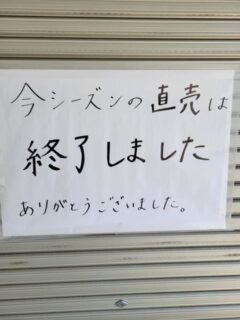 今シーズンの直売は
終了しました
ありがとうございました。